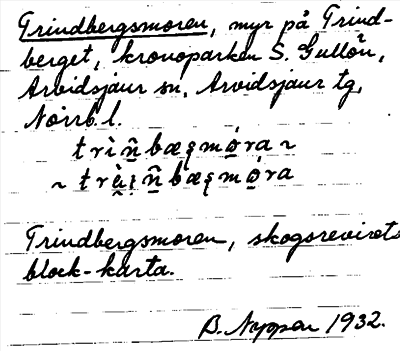 Trindbergsmoren, myr på Trind-
berget, kronoparken S. Gullön,
Arvidsjaur sn, Arvidsjaur tg,
Norrb. l.
trìñ̲bæşmo̲ra ~
~ trìñ̲bæşmo̲ra
Trindbergsmoren, skogsrevirets
block-karta.
B. Nyman 1932.